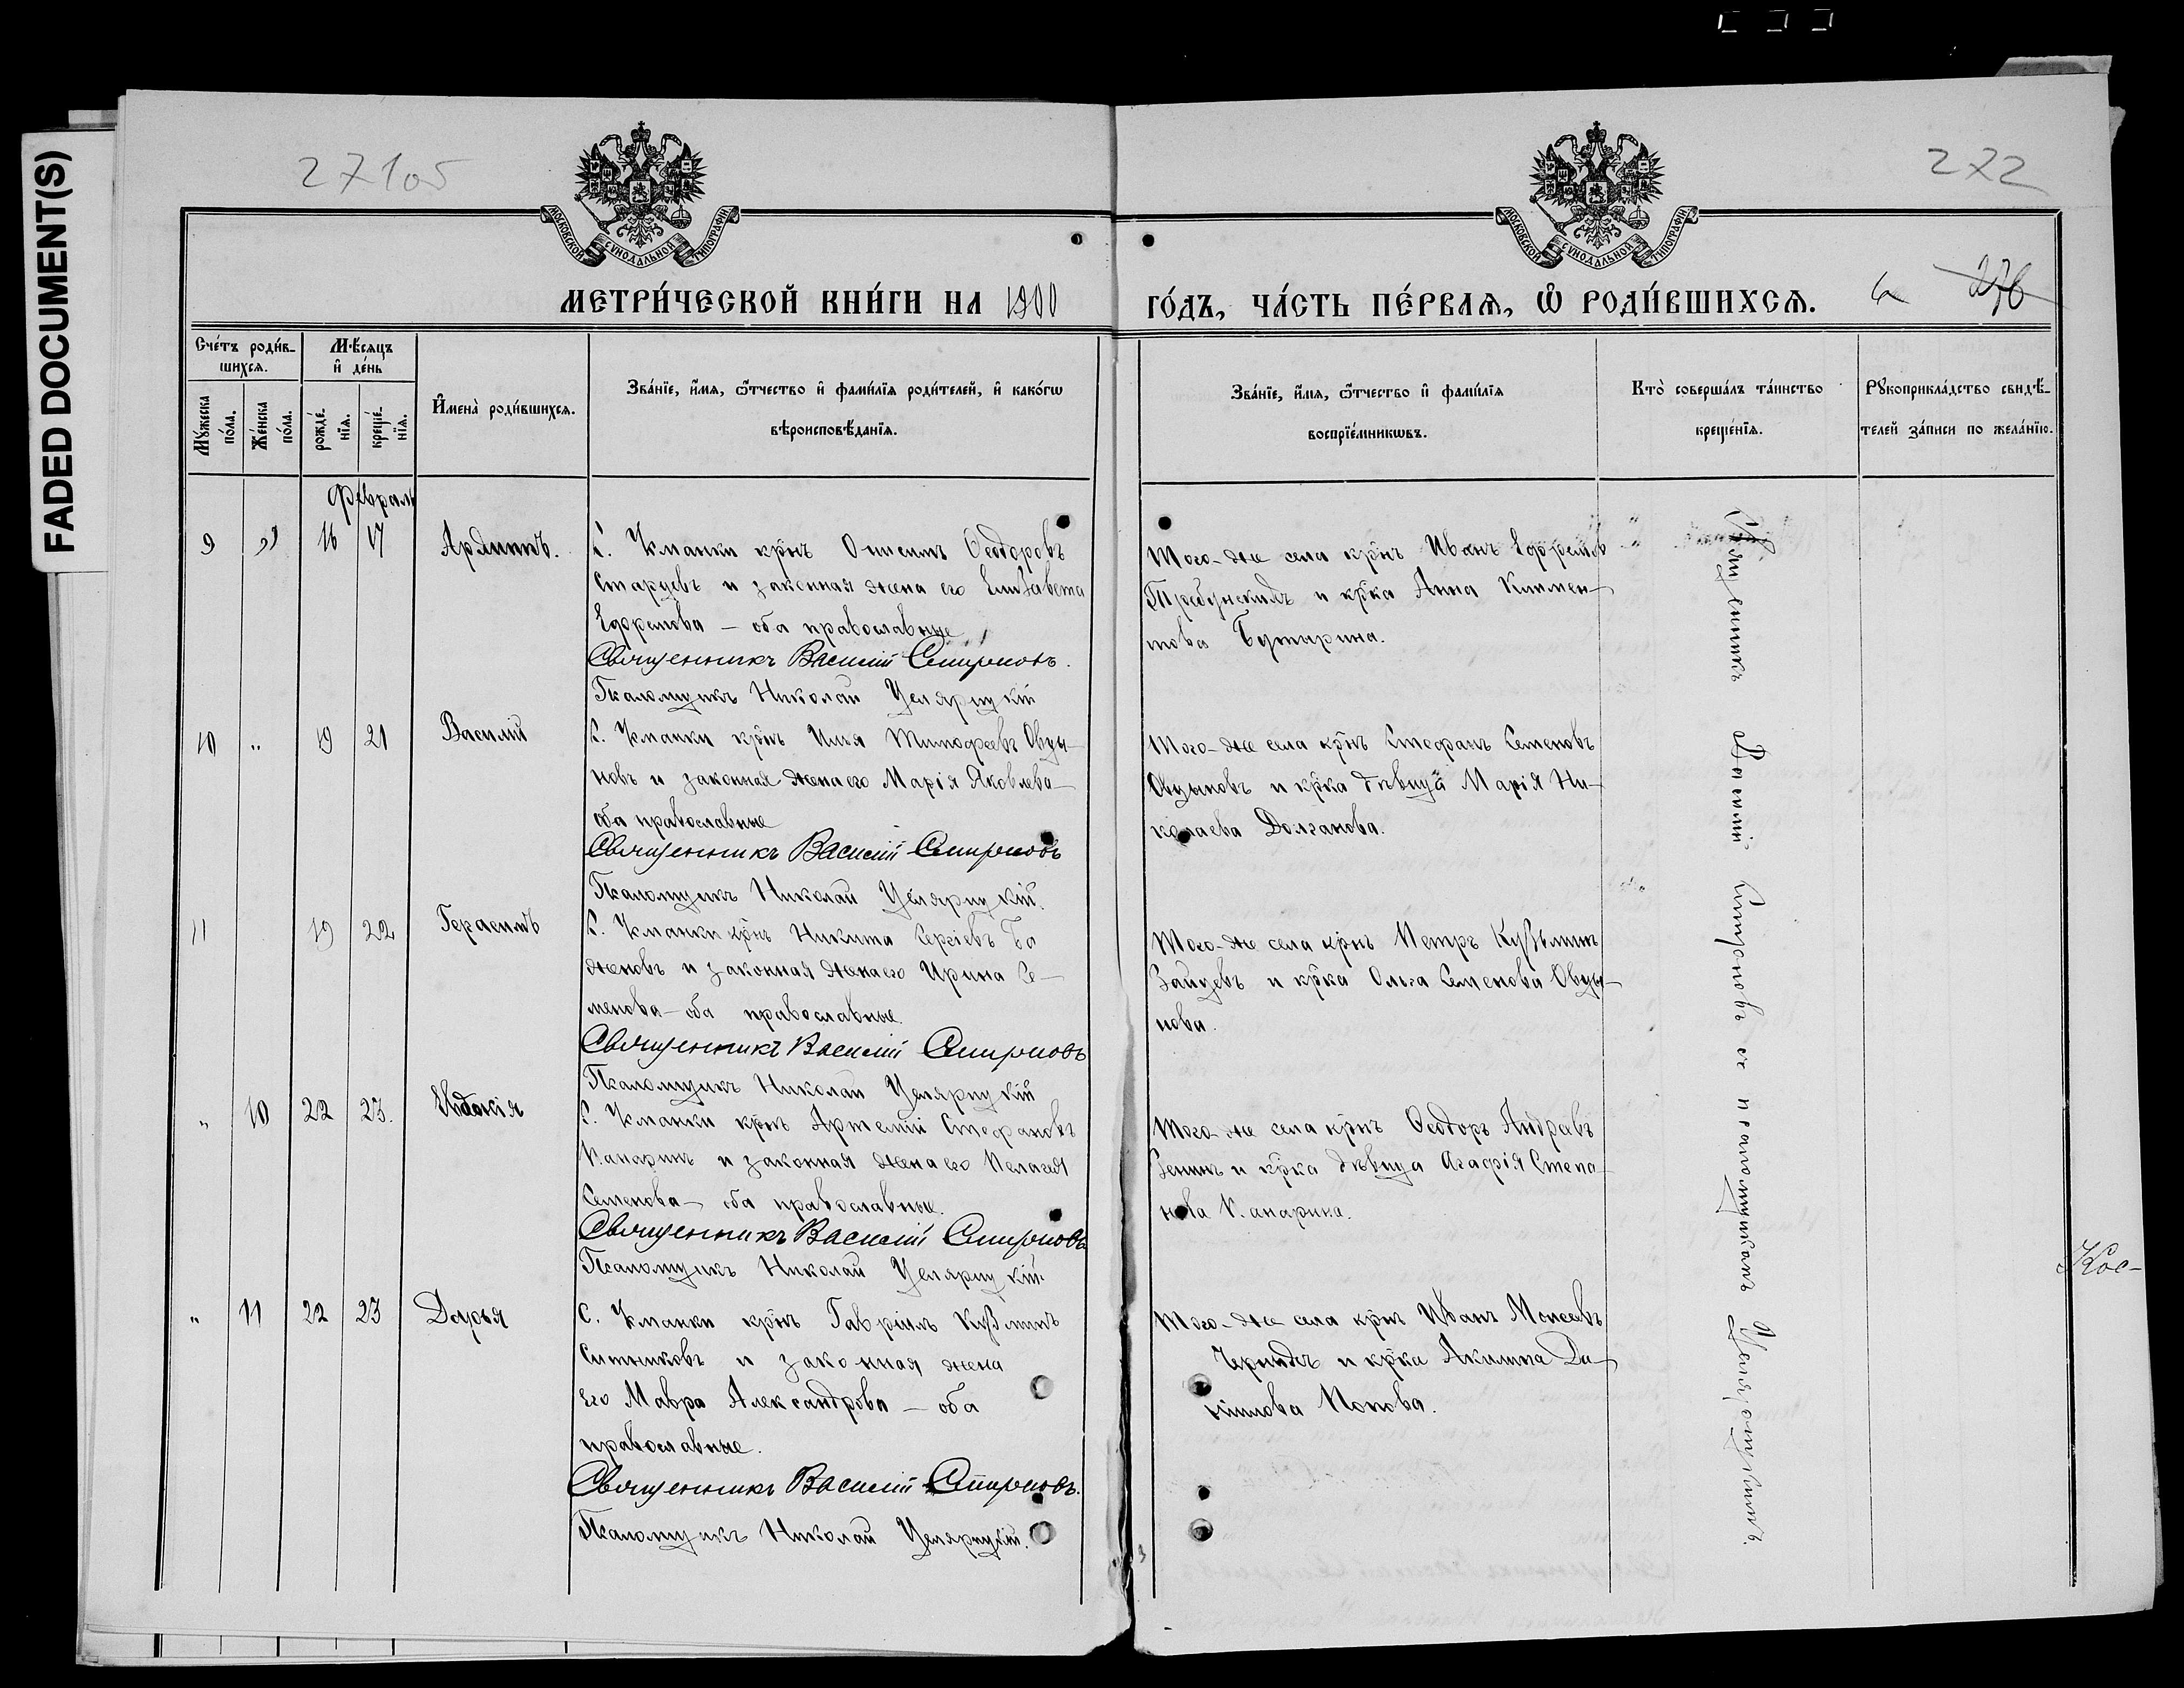 FADED DOCUMENT(S)
27105
272
МОСКОВСКОЙ СѴНОДАЛЬНОЙ ТИПОГРАФІИ
МОСКОВСКОЙ СѴНОДАЛЬНОЙ ТИПОГРАФІИ
МЕТРИ́ЧЕСКОЙ КНИ́ГИ НА 1900
ГО́ДЪ, ЧА́СТЬ ПЕ́РВАѦ, Ѡ҆ РОДИ́ВШИХСѦ.
276
Сче́тъ роди́в-
шихсѧ.
Мꙋ́жеска
по́ла.
Же́нска
по́ла.
Мѣ́сѧцъ
и҆ де́нь
рожде́-
нїѧ.
креще́-
нїѧ.
И҆мена̀ роди́вшихсѧ.
Зва́нїе, и҆́мѧ, ѻ҆́тчество и҆ фами́лїѧ роди́телей, и҆ како́гѡ
вѣроисповѣ́данїѧ.
Зва́нїе, и҆́мѧ, ѻ҆́тчество и҆ фами́лїѧ
воспрїе́мникѡвъ.
Кто̀ соверша́лъ та́инство
креще́нїѧ.
Рꙋкоприкла́дство свидѣ́-
телей за́писи по жела́нїю.
Февраль
9 " 16 17
С. крнъ Онисимъ Ѳеодоровъ
Старцевъ и законная жена его Елизавета
Ефремова — оба православные
Священникъ Василій Смирновъ.
Псаломщикъ Николай
Того-же села крнъ Иванъ Ефремовъ
и крка Анна Климен-
това Бутырина.
10 " 19 21
Василій
С. крнъ Илья Тимофеевъ Овцы-
новъ и законная жена его Марія Яковлева —
оба православные
Священникъ Василій Смирновъ
Псаломщикъ Николай
Того-же села крнъ Стефанъ Семеновъ
Овцыновъ и крка дѣвица Марія Ни-
колаева Долганова.
11 19 22
Герасимъ
С. крнъ Никита Сергіевъ Ба
женовъ и законная жена его Ирина Се-
менова — оба православные.
Священникъ Василій Смирновъ
Псаломщикъ Николай
Того-же села крнъ Петръ Кузьминъ
Зайцевъ и крка Ольга Семенова Овцы-
нова.
" 10 22 23.
Евдокія
С. крнъ Артемій Стефановъ
Капаринъ и законная жена его Пелагея
Семенова — оба православные.
Священникъ Василій Смирновъ
Псаломщикъ Николай
Того-же села крнъ Ѳеодоръ Андреевъ
Зенинъ и крка дѣвица Агафія Степа-
нова Капарина.
" 11 22 23
Дарья
С. крнъ Гавріилъ Кузминъ
Ситниковъ и законная жена
его Мавра Александрова — оба
православные.
Священникъ Василій Смирновъ.
Псаломщикъ Николай
Того-же села крнъ Иванъ Моисеевъ
и крка Акилина Да-
ніилова Попова.
Священникъ Василій Смирновъ съ псаломщикомъ
Кос-